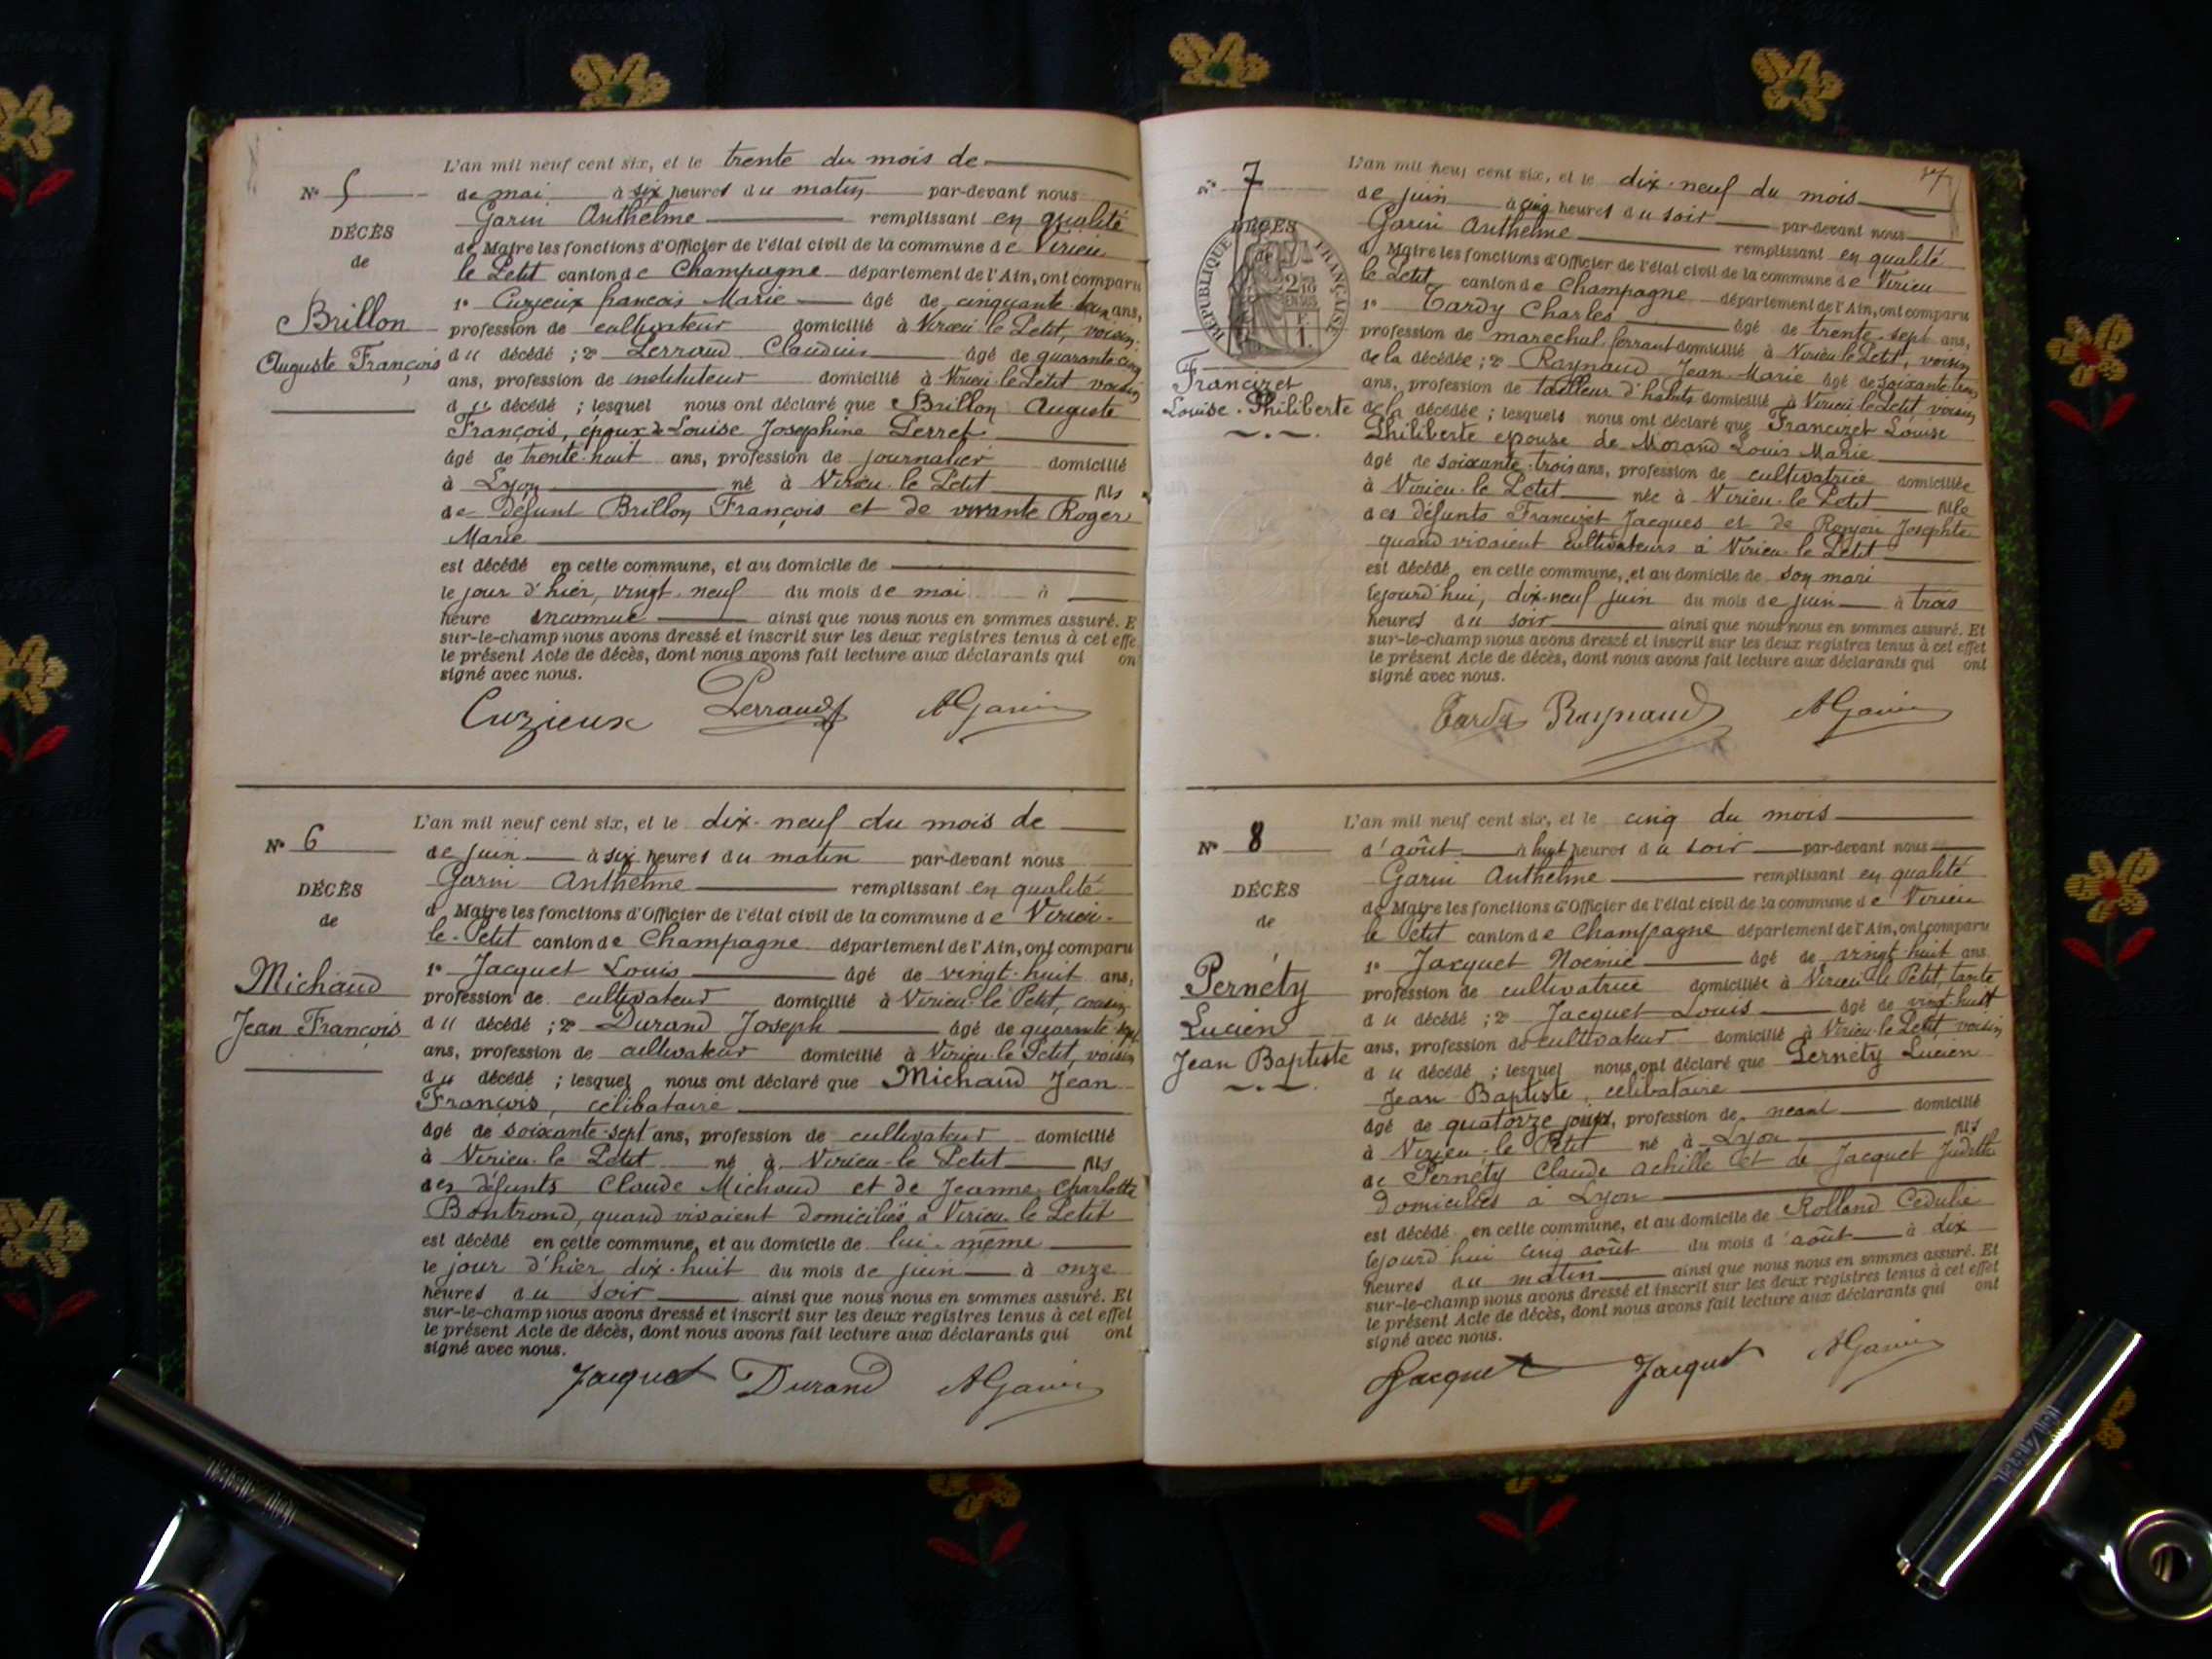 L'an mil neuf cent six, et le trente du mois de
N° 5
de mai à six heures du matin par-devant nous
Garin Anthelme remplissant en qualité
DÉCÈS
de Maire les fonctions d'Officier de l'état civil de la commune de Virieu
de
le Petit canton de Champagne département de l'Ain, ont comparu
1° Cuzieux françois Marie âgé de cinquante ans,
Brillon
profession de cultivateur domicilié à Virieu le Petit, voisin
Auguste François
du décédé ; 2° Perraud Claudius âgé de quarante cinq
ans, profession de instituteur domicilié à Virieu le Petit voisin
du décédé ; lesquel nous ont déclaré que Brillon Auguste
François, époux de Louise Josephine Perret
âgé de trente-huit ans, profession de journalier domicilié
à Lyon né à Virieu-le Petit fils
de défunt Brillon François et de vivante Roger
Marie
est décédé en cette commune, et au domicile de
le jour d'hier, vingt-neuf du mois de mai à
heure inconnue ainsi que nous nous en sommes assuré. E
sur-le-champ nous avons dressé et inscrit sur les deux registres tenus à cet effe
le présent Acte de décès, dont nous avons fait lecture aux déclarants qui on
signé avec nous.
Cuzieux Perraud AGarin
L'an mil neuf cent six, et le dix-neuf du mois de
N° 6
de juin à six heures du matin par-devant nous
Garin Anthelme remplissant en qualité
DÉCÈS
d Maire les fonctions d'Officier de l'état civil de la commune de Virieu-
de
le-Petit canton de Champagne département de l'Ain, ont comparu
1° Jacquet Louis âgé de vingt-huit ans,
Michaud
profession de cultivateur domicilié à Virieu-le Petit, cousin
Jean François
du décédé ; 2° Durand Joseph âgé de quarante-sept
ans, profession de cultivateur domicilié à Virieu-le Petit, voisin
du décédé ; lesquel nous ont déclaré que Michaud Jean
François, célibataire
âgé de soixante-sept ans, profession de cultivateur domicilié
à Virieu-le Petit né à Virieu-le Petit fils
des défunts Claude Michaud et de Jeanne Charlotte
Bontrond, quand vivaient domiciliés à Virieu-le Petit
est décédé en cette commune, et au domicile de lui-même
le jour d'hier dix-huit du mois de juin à onze
heures du soir ainsi que nous nous en sommes assuré. Et
sur-le-champ nous avons dressé et inscrit sur les deux registres tenus à cet effet
le présent Acte de décès, dont nous avons fait lecture aux déclarants qui ont
signé avec nous.
Jacquet Durand AGarin
L'an mil neuf cent six, et le dix-neuf du mois
N° 7
de juin à cinq heures du soir par-devant nous
DÉCÈS
Garin Anthelme remplissant en qualité
de
d Maire les fonctions d'Officier de l'état civil de la commune de Virieu
RÉPUBLIQUE FRANÇAISE
le Petit canton de Champagne département de l'Ain, ont comparu
1° Tardy Charles âgé de trente-sept ans,
profession de marechal ferrant domicilié à Virieu le Petit, voisin
de la décédée ; 2° Raynaud Jean-Marie âgé de soixante-trois
Francizet
ans, profession de tailleur d'habits domicilié à Virieu le Petit voisin
Louise-Philiberte
de la décédée ; lesquels nous ont déclaré que Francizet Louise
Philiberte épouse de Morand Louis Marie
âgé de soixante-trois ans, profession de cultivatrice domiciliée
à Virieu-le Petit née à Virieu-le Petit fille
des défunts Francizet Jacques et de Ronjon Josephte
quand vivaient cultivateurs à Virieu-le Petit
est décédé en cette commune, et au domicile de son mari
lejourd'hui, dix-neuf juin du mois de juin à trois
heures du soir ainsi que nous nous en sommes assuré. Et
sur-le-champ nous avons dressé et inscrit sur les deux registres tenus à cet effet
le présent Acte de décès, dont nous avons fait lecture aux déclarants qui ont
signé avec nous.
Tardy Raynaud AGarin
L'an mil neuf cent six, et le cinq du mois
N° 8
d'août à huit heures du soir par-devant nous
Garin Anthelme remplissant en qualité
DÉCÈS
de Maire les fonctions d'Officier de l'état civil de la commune de Virieu
de
le Petit canton de Champagne département de l'Ain, ont comparu
1° Jacquet Noémie âgé de vingt-huit ans
Pernéty
profession de cultivatrice domiciliée à Virieu le Petit, tante
Lucien
du décédé ; 2° Jacquet Louis âgé de vingt-huit
Jean Baptiste
ans, profession de cultivateur domicilié à Virieu-le Petit, voisin
du décédé ; lesquel nous ont déclaré que Pernéty Lucien
Jean-Baptiste, célibataire
âgé de quatorze jours, profession de néant domicilié
à Virieu-le Petit né à Lyon fils
de Pernéty Claude Achille et de Jacquet Judith
domiciliés à Lyon
est décédé en cette commune, et au domicile de Rolland Cédulie
lejourd'hui cinq août du mois d'août à dix
heures du matin ainsi que nous nous en sommes assuré. Et
sur-le-champ nous avons dressé et inscrit sur les deux registres tenus à cet effet
le présent Acte de décès, dont nous avons fait lecture aux déclarants qui ont
signé avec nous.
Jacquet Jacquet AGarin